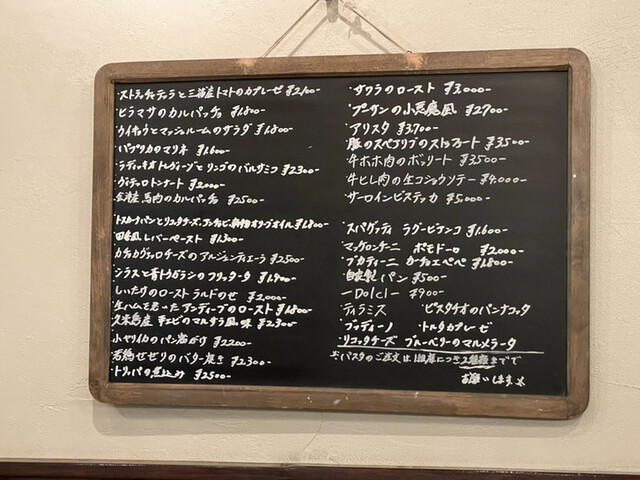 ・ストラッチャテッラと三浦産トマトのカプレーゼ ¥2,100-
・ヒラマサのカルパッチョ ¥1,800-
・ウイキョウとマッシュルームのサラダ ¥1,800-
・パプリカのマリネ ¥1,600-
・ラディッキオトレヴィーゾとリンゴのバルサミコ ¥2300-
・ヴィテッロトンナート ¥2000-
・会津産馬肉のカルパッチョ ¥2500-
・トスカーナパンとリコッタチーズ、アンチョビ、新物オリーブオイル ¥1,800-
・田舎風レバーペースト ¥1,300-
・カチョカヴァロチーズのアルジェンティエーラ ¥2500-
・シラスと青トウガラシのフリッタータ ¥1,900-
・しいたけのロースト ラルドのせ ¥2,000-
・生ハムを巻いたアンディーブのロースト ¥1,800-
・久米島産 車エビのマルサラ風味 ¥2300-
・小ヤリイカのパン粉がけ ¥2200-
・若鶏せせりのバター焼き ¥2,300-
・トリッパの煮込み ¥2500-
・サワラのロースト ¥3,000-
・プーサンの小悪魔風 ¥2700-
・アリスタ ¥3,700-
・豚のスペアリブのストゥファート ¥3500-
・牛ホホ肉のボッリート ¥3500-
・牛ヒレ肉の生コショウソテー ¥4,000-
・サーロインビステッカ ¥5,000-
・スパゲッティ ラグービアンコ ¥1,600-
・マッケロンチーニ ポモドーロ ¥2000-
・ブカティーニ カーチョエペペ ¥1,800-
・自家製パン ¥500-
－Dolci－ ¥900-
・ティラミス ・ピスタチオのパンナコッタ
・ブディーノ ・トルタカプレーゼ
・リコッタチーズ ブルーベリーのマルメラータ
※パスタのご注文は1組様につき2種類までで
お願いします